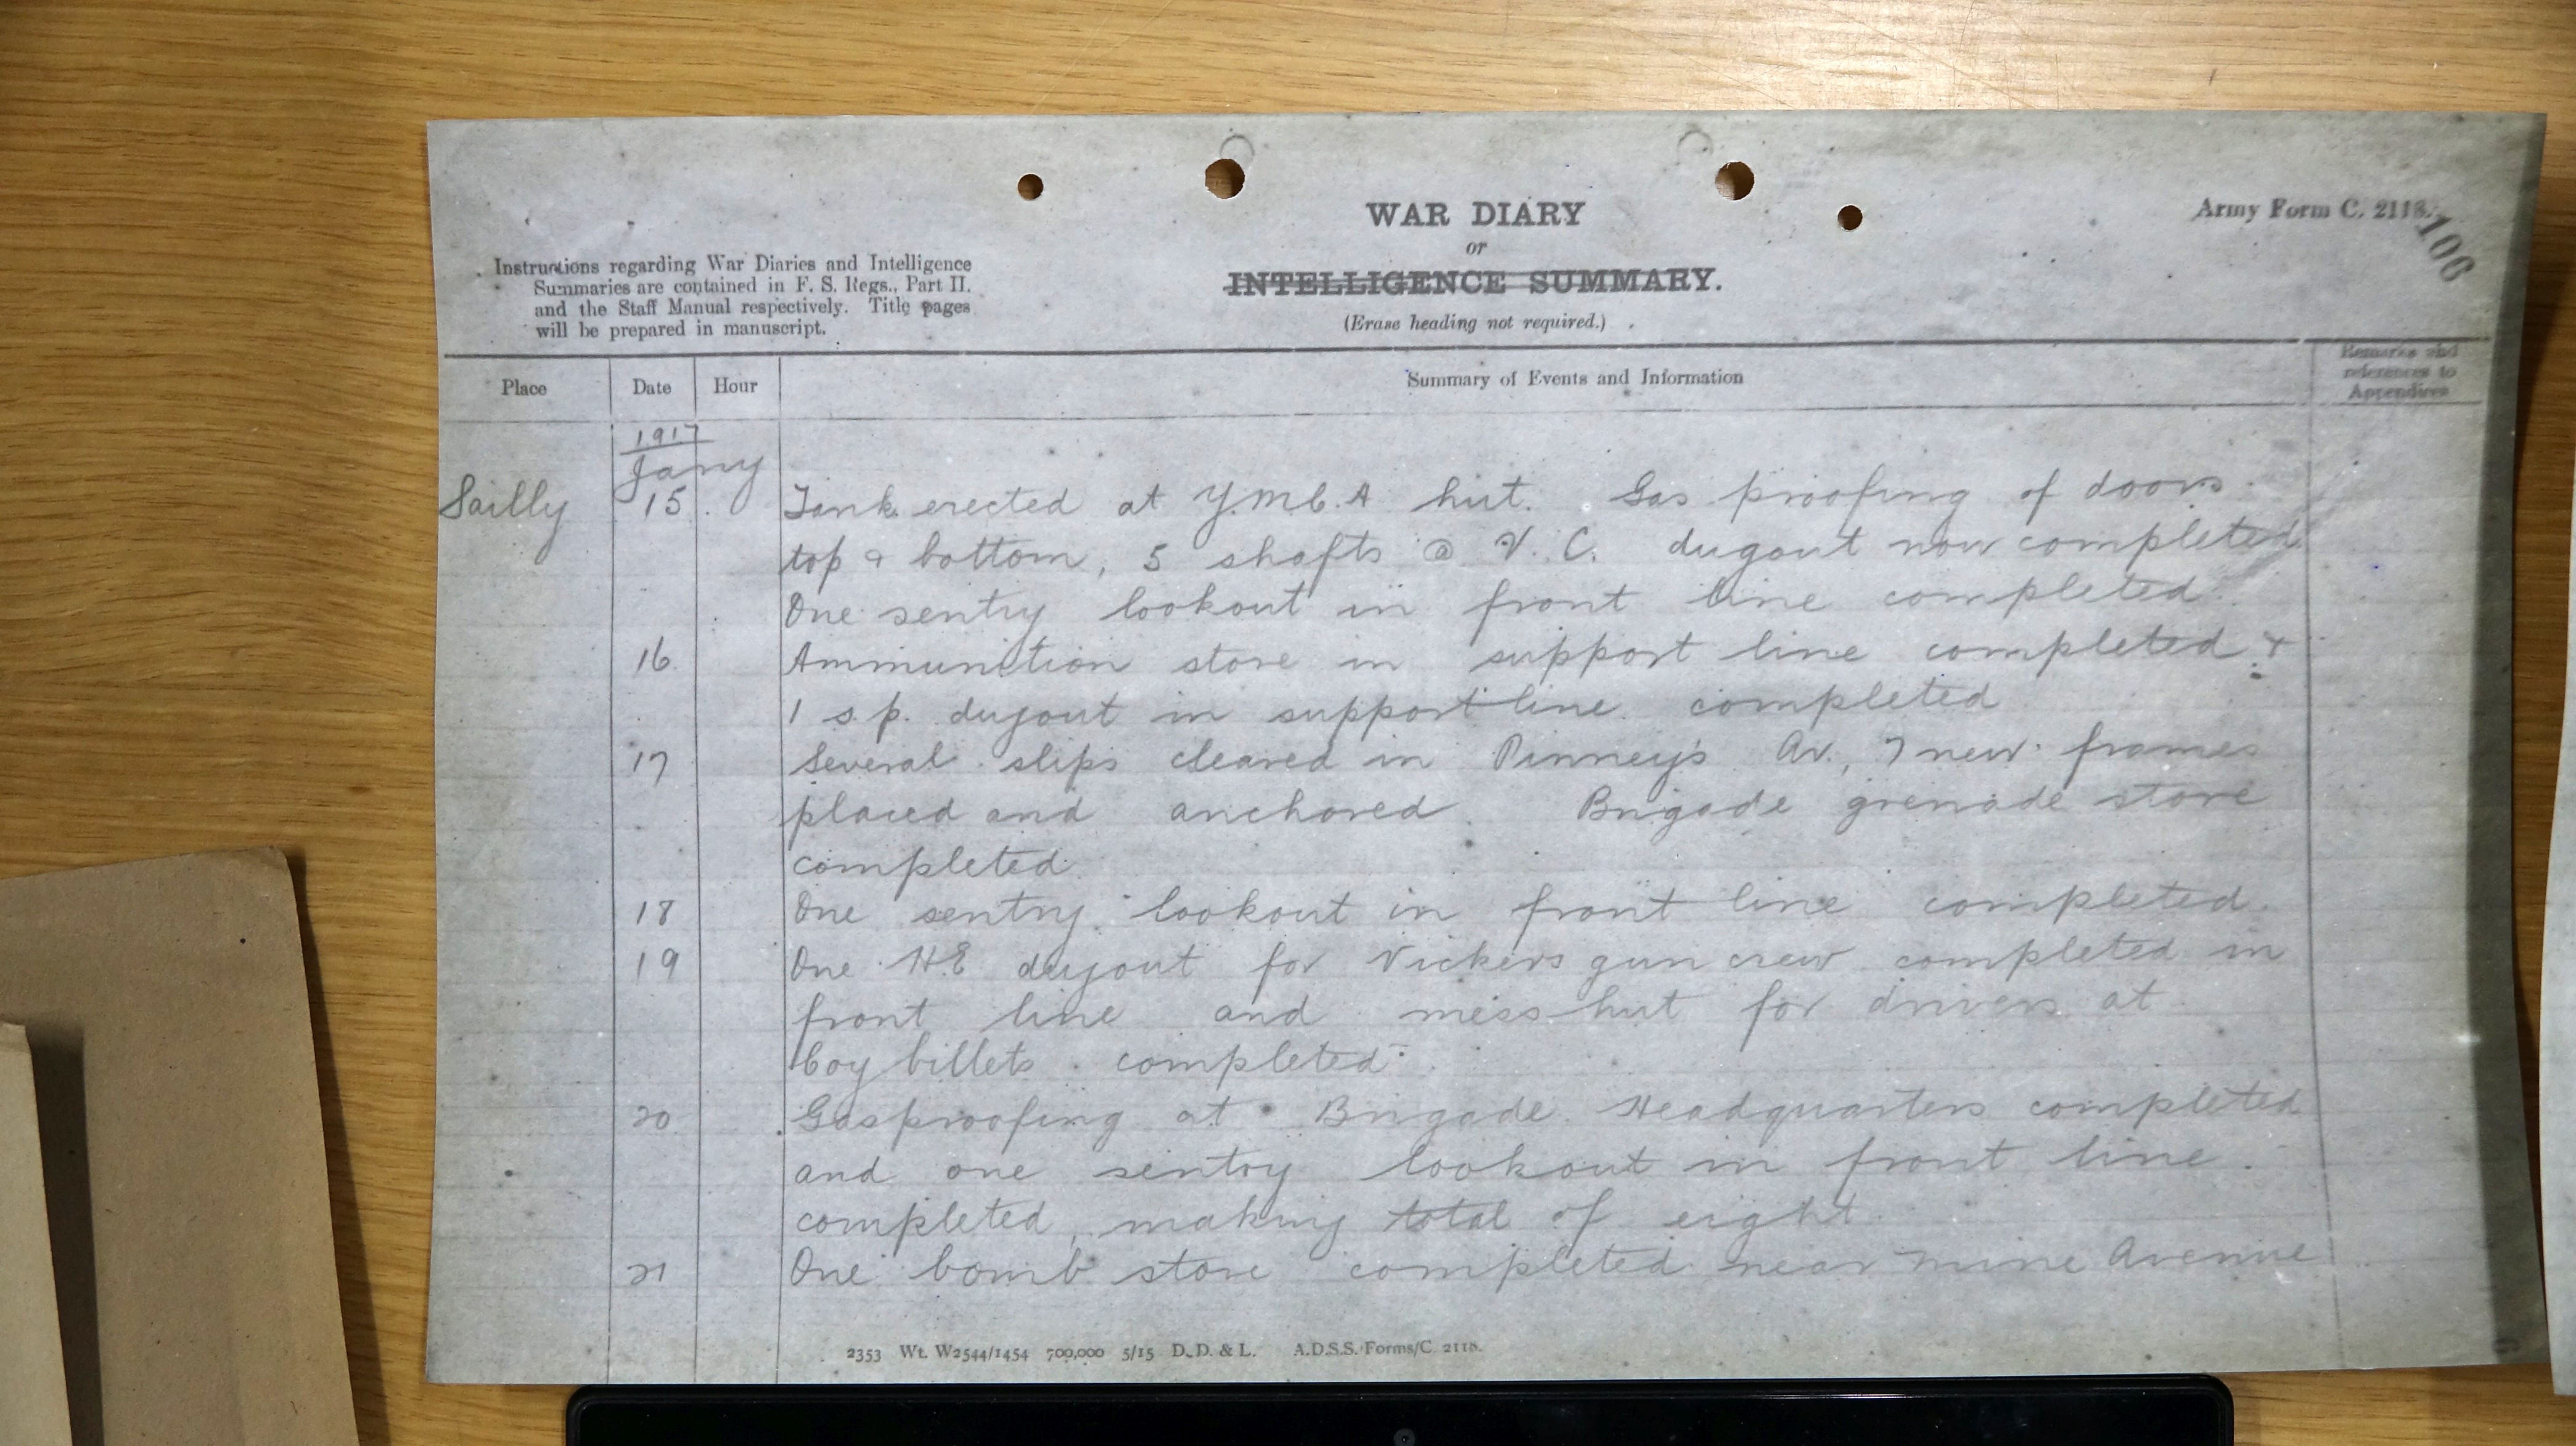 WAR DIARY
or
INTELLIGENCE SUMMARY.
(Erase heading not required.)
Army Form C. 2118.
106
Instructions regarding War Diaries and Intelligence
Summaries are contained in F. S. Regs., Part II.
and the Staff Manual respectively. Title pages
will be prepared in manuscript.
Place Date Hour Summary of Events and Information Remarks and
references to
Appendices
1917
Jany
Sailly 15. Tank erected at Y.M.C.A hut. Gas proofing of doors
top & bottom, 5 shafts @ V. C. dugout now completed
One sentry lookout in front line completed.
16 Ammunition store in support line completed &
1 s.p. dugout in support line completed
17 Several slips cleared in Pinney's Av., 7 new frames
placed and anchored. Brigade grenade store
completed.
18 One sentry lookout in front line completed.
19 One H.E dugout for Vickers gun crew completed in
front line and mess hut for drivers at
Coy billets completed.
20 Gasproofing at Brigade Headquarters completed
and one sentry lookout in front line
completed, making total of eight.
21 One bomb store completed near mine Avenue
2353 Wt. W2544/1454 700,000 5/15 D. D. & L. A.D.S.S. Forms/C 2118.